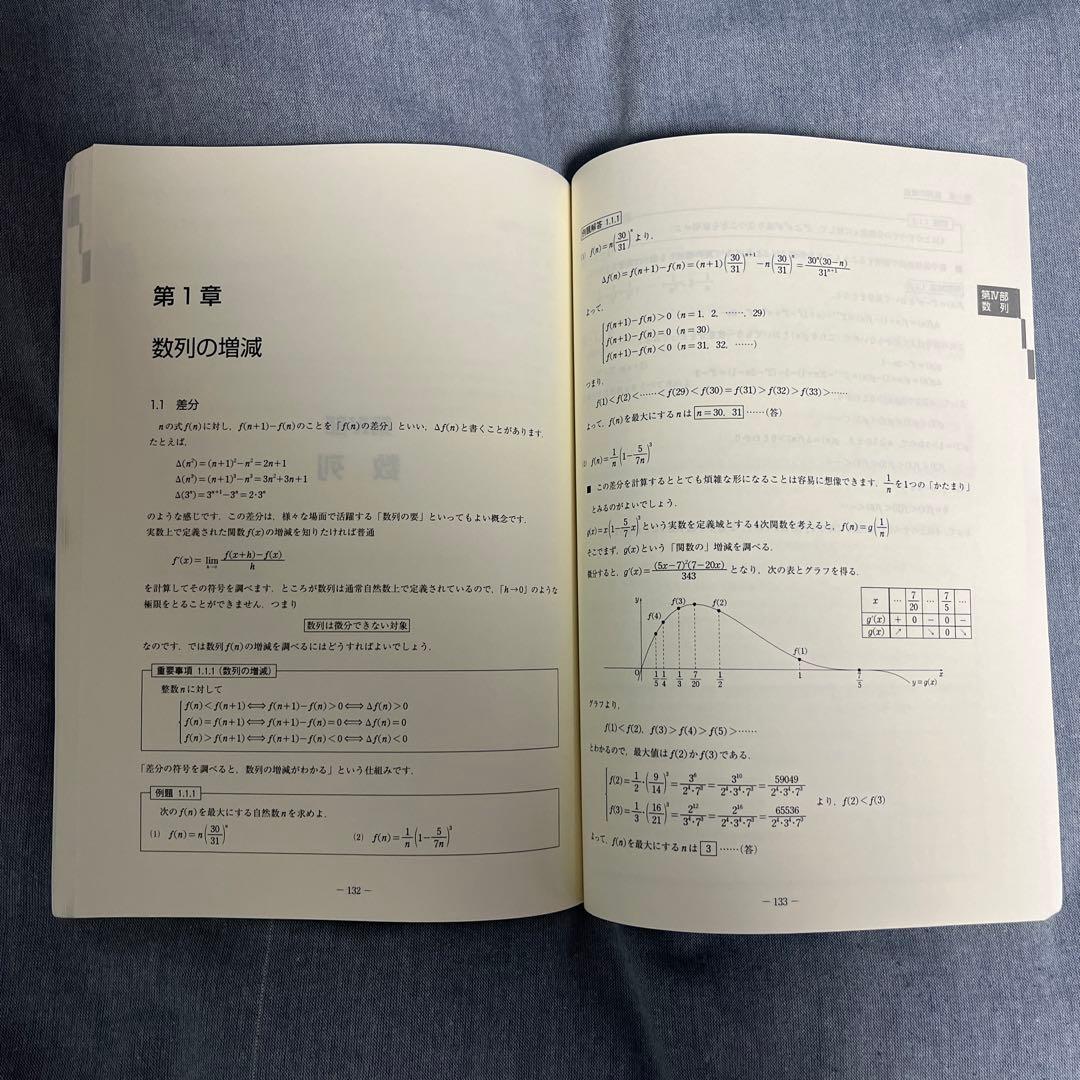 第1章
数列の増減
1.1 差分
nの式f(n)に対し，f(n+1)−f(n)のことを「f(n)の差分」といい，Δf(n)と書くことがあります．
たとえば，
Δ(n²)=(n+1)²−n²=2n+1
Δ(n³)=(n+1)³−n³=3n²+3n+1
Δ(3ⁿ)=3ⁿ⁺¹−3ⁿ=2・3ⁿ
のような感じです．この差分は，様々な場面で活躍する「数列の要」といってもよい概念です．
実数上で定義された関数f(x)の増減を知りたければ普通
f′(x)=lim_{h→0} (f(x+h)−f(x))/h
を計算してその符号を調べます．ところが数列は通常自然数上で定義されているので，「h→0」のような
極限をとることができません．つまり
数列は微分できない対象
なのです．では数列f(n)の増減を調べるにはどうすればよいでしょう．
重要事項 1.1.1（数列の増減）
整数nに対して
f(n)<f(n+1)⟺f(n+1)−f(n)>0⟺Δf(n)>0
f(n)=f(n+1)⟺f(n+1)−f(n)=0⟺Δf(n)=0
f(n)>f(n+1)⟺f(n+1)−f(n)<0⟺Δf(n)<0
「差分の符号を調べると，数列の増減がわかる」という仕組みです．
例題 1.1.1
次のf(n)を最大にする自然数nを求めよ．
(1) f(n)=n(30/31)ⁿ (2) f(n)=1/n(1−5/7n)³
− 132 −
例題解答 1.1.1
(1) f(n)=n(30/31)ⁿより，
Δf(n)=f(n+1)−f(n)=(n+1)(30/31)ⁿ⁺¹−n(30/31)ⁿ=30ⁿ(30−n)/31ⁿ⁺¹
よって，
f(n+1)−f(n)>0 (n=1，2，……，29)
f(n+1)−f(n)=0 (n=30)
f(n+1)−f(n)<0 (n=31，32，……)
つまり，
f(1)<f(2)<……<f(29)<f(30)=f(31)>f(32)>f(33)>……
よって，f(n)を最大にするnは n=30，31 ……(答)
(2) f(n)=1/n(1−5/7n)³
■ この差分を計算するととても煩雑な形になることは容易に想像できます．1/nを1つの「かたまり」
とみるのがよいでしょう．
g(x)=x(1−5/7x)³という実数を定義域とする4次関数を考えると，f(n)=g(1/n)
そこでまず，g(x)という「関数の」増減を調べる．
微分すると，g′(x)=(5x−7)²(7−20x)/343 となり，次の表とグラフを得る．
x … 7/20 … 7/5 …
g′(x) + 0 − 0 −
g(x) ↗ ↘ 0 ↘
y
f(4) f(3) f(2) f(1)
O 1/5 1/4 1/3 7/20 1/2 1 7/5 x
y=g(x)
グラフより，
f(1)<f(2)，f(3)>f(4)>f(5)>……
とわかるので，最大値はf(2)かf(3)である．
f(2)=1/2・(9/14)³=3⁶/2⁴・7³=3¹⁰/2⁴・3⁴・7³=59049/2⁴・3⁴・7³
f(3)=1/3・(16/21)³=2¹²/3⁴・7³=2¹⁶/2⁴・3⁴・7³=65536/2⁴・3⁴・7³ より，f(2)<f(3)
よって，f(n)を最大にするnは 3 ……(答)
− 133 −
第Ⅳ部
数 列